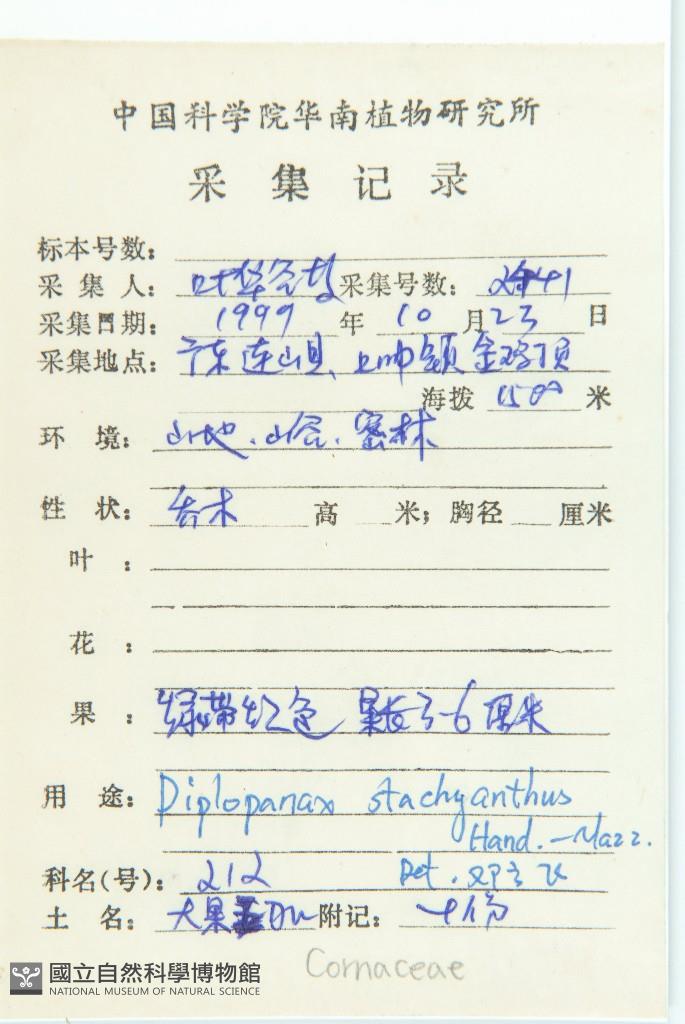 中国科学院华南植物研究所
采集记录
标本号数：
采集人：叶华谷 采集号数：
采集日期：1999 年 10 月 23 日
采集地点：广东连山县、上帅镇 金鸡顶
海拨 1500 米
环境：山地、山谷、密林
性状：乔木 高 米；胸径 厘米
叶：
花：
果：绿带红色 果长3-6厘米
用途：Diplopanax stachyanthus
Hand.-Mazz.
科名(号)：212 Det. 邓云飞
土名：大果 附记：十份
Cornaceae
國立自然科學博物館
NATIONAL MUSEUM OF NATURAL SCIENCE